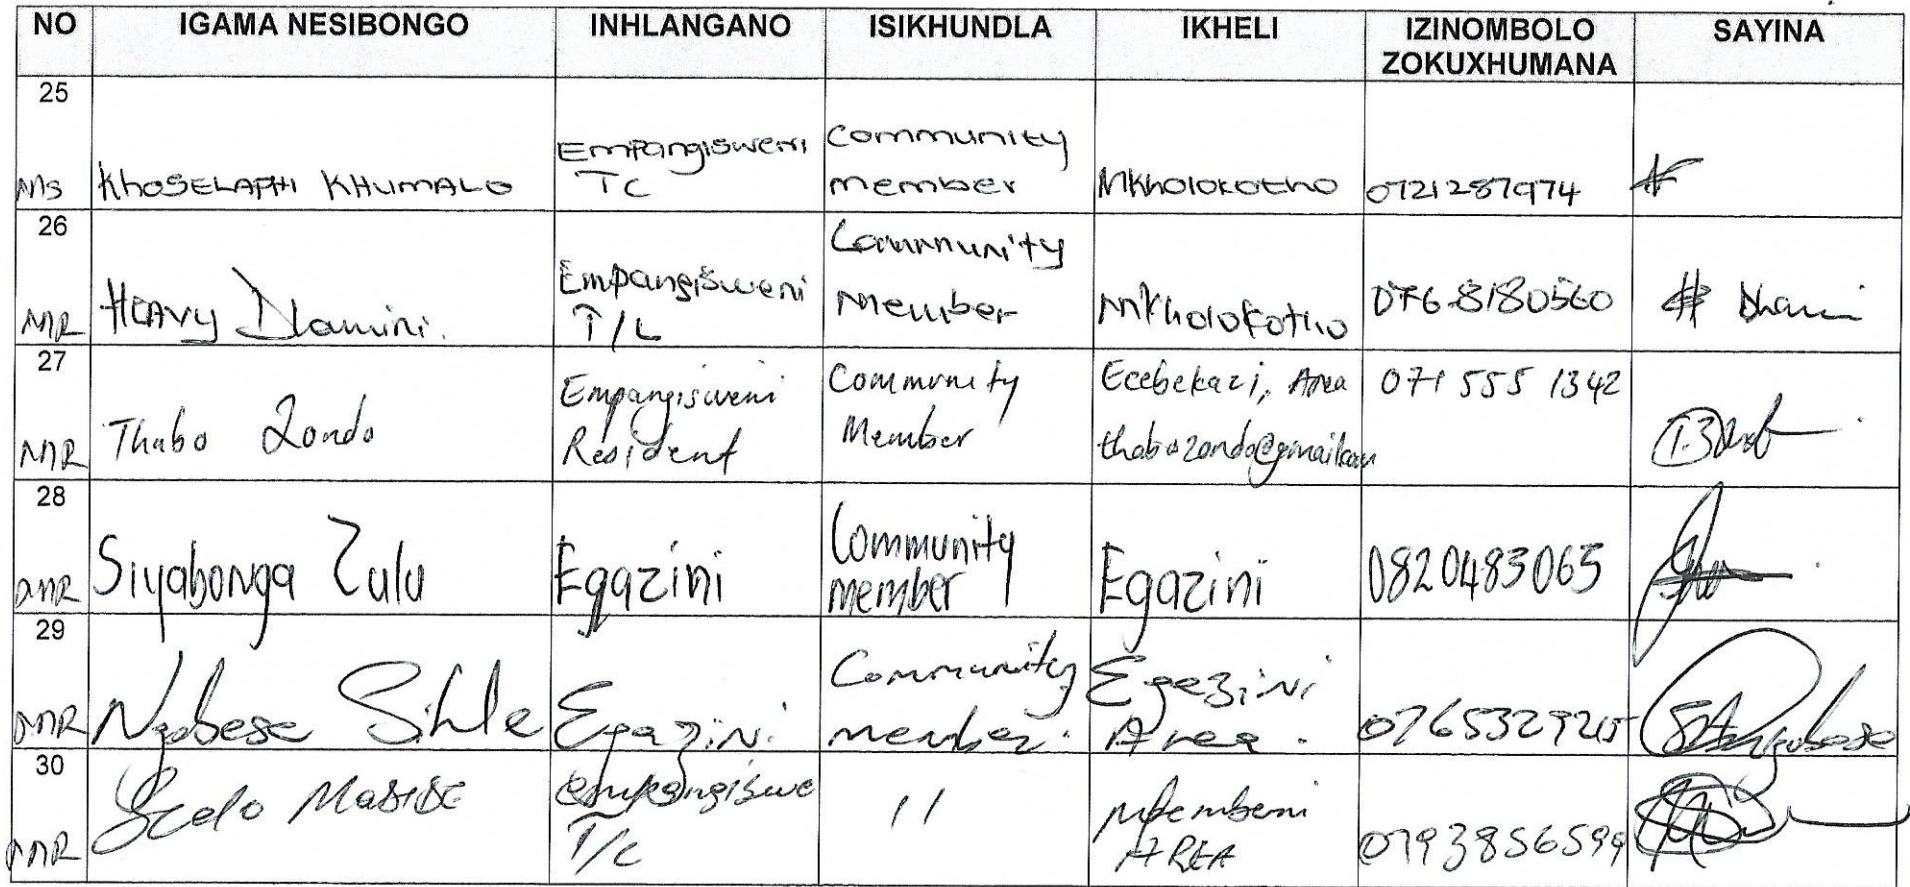 NO IGAMA NESIBONGO INHLANGANO ISIKHUNDLA IKHELI IZINOMBOLO ZOKUXHUMANA SAYINA
25 Ms KhOSELAPHI KHUMALO Empangisweni TC Community member MKholokotho 0721287974
26 MR HEAVY Dlamini. Empangisweni T/C Community Member MKholokotho 076 8180560
27 MR Thabo Zondo Empangisweni Resident Community Member Ecebekazi, Area thabozondo@gmail.com 071 555 1342
28 MR Siyabonga Zulu Egazini Community member Egazini 0820483065
29 MR Ngobese Sihle Egazini. Community member. Egezini Area.
30 MR Scelo MaBISE T/C 11 AREA 0793856599